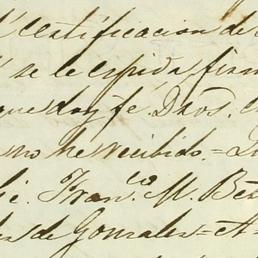 certificacion de
se le espida, firm
que doy fé. Dros.
no he recibido.=
Lic. Fran.co M. Be
de Gonzales=A=